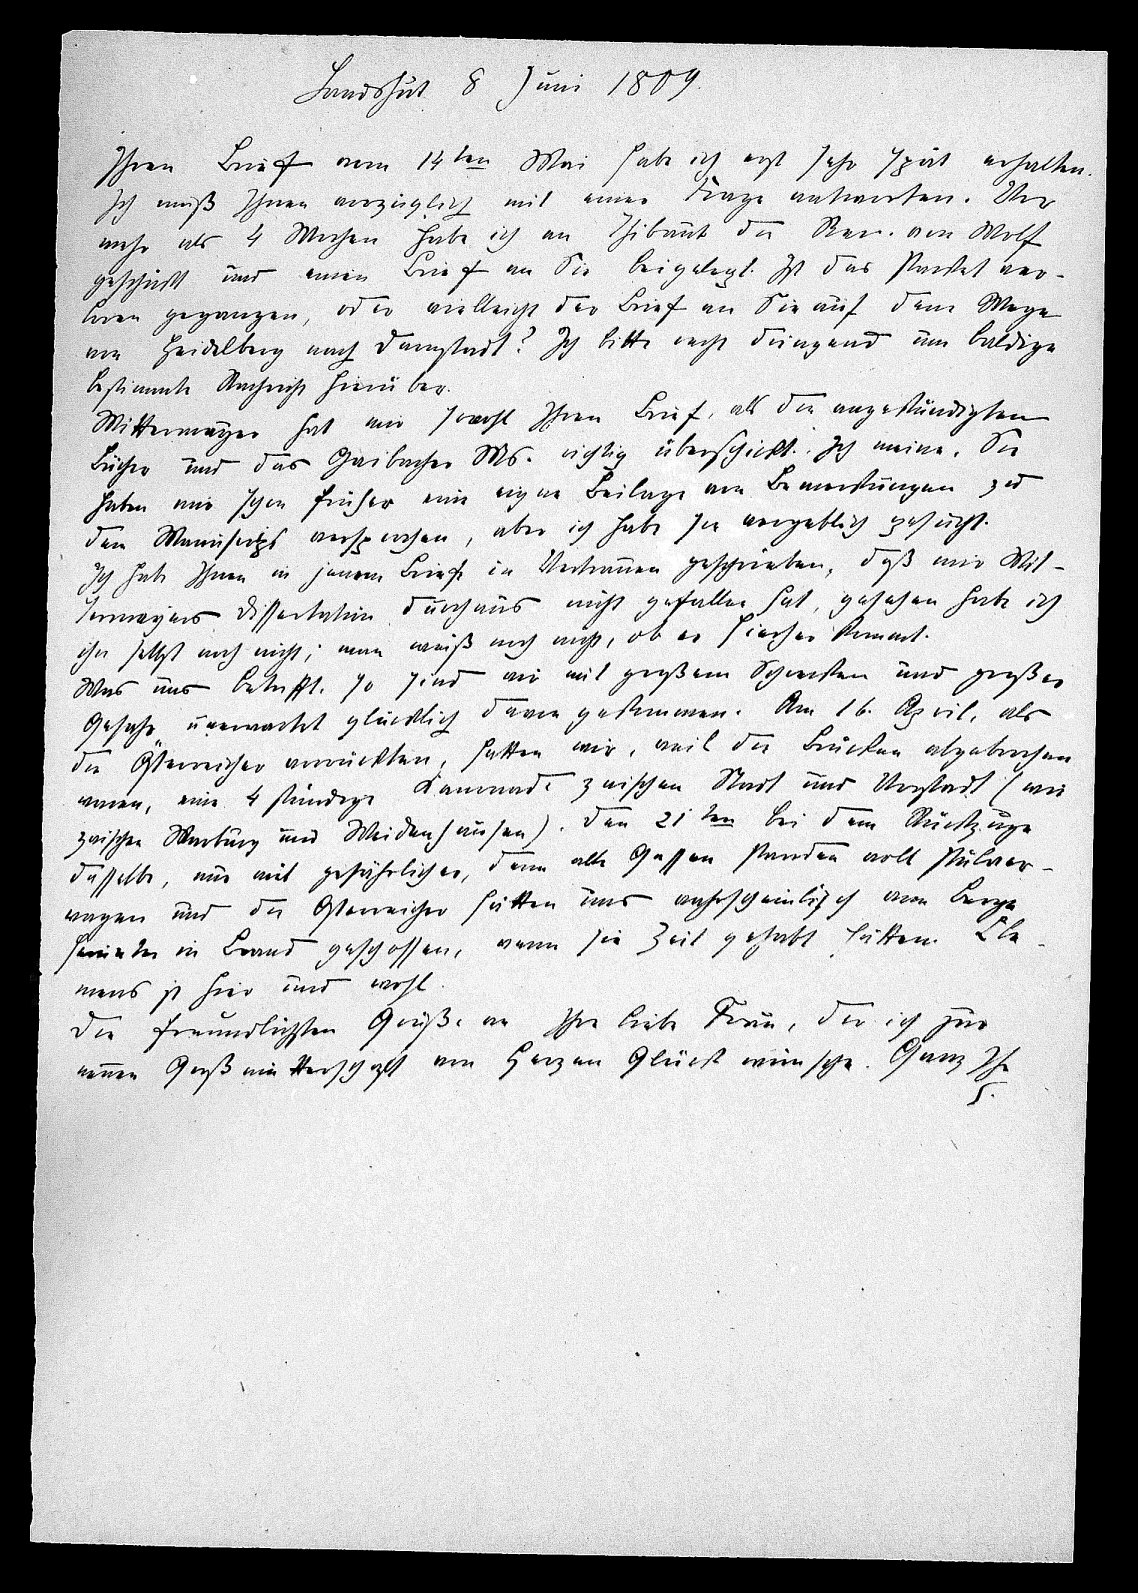 Landshut 8 Juni 1809.
Ihren Brief vom 14ten Mai habe ich erst sehr spät erhalten.
Ich muß Ihnen vorzüglich mit einer Frage antworten. Vor
mehr als 4 Wochen habe ich an Thibaut die Rec. von Wolf
geschickt und einen Brief an Sie beigelegt. Ist das Packet ver-
loren gegangen, oder vielleicht der Brief an Sie auf dem Wege
von Heidelberg nach Darmstadt? Ich bitte recht dringend um baldige
bestimmte Nachricht hierüber.
Mittermayer hat mir sowohl Ihren Brief, als die angekündigten
Bücher und das Gaibacher Ms. richtig überschickt. Ich meine, Sie
haben mir schon früher eine eigne Beilage von Bemerkungen zu
dem Manuscript versprochen, aber ich habe sie vergeblich gesucht.
Ich habe Ihnen in jenem Briefe in Vertrauen geschrieben, daß mir Mit-
termayers Dissertation durchaus nicht gefallen hat, gesehen habe ich
ihn selbst noch nicht; man weiß noch nicht, ob er hierher kommt.
Was uns betrifft, so sind wir mit großem Schrecken und großer
Gefahr unerwartet glücklich davon gekommen. Am 16. April, als
die Österreicher vorrückten, hatten wir, weil die Brücken abgebrochen
waren, eine 4 stündige Kanonade zwischen Stadt und Vorstadt (wie
zwischen Marburg und Weidenhausen). Den 21ten bei dem Rückzuge
dasselbe, nur mit gefährlicher, denn alle Gassen standen voll Pulver-
wagen und die Österreicher hätten uns wahrscheinlich vom Berge
herunter in Brand geschossen, wenn sie Zeit gehabt hätten. Cle-
mens ist hier und wohl.
Die freundlichsten Grüße an Ihre liebe Frau, der ich zur
neuen Großmutterschaft von Herzen Glück wünsche. Ganz Ihr
S.